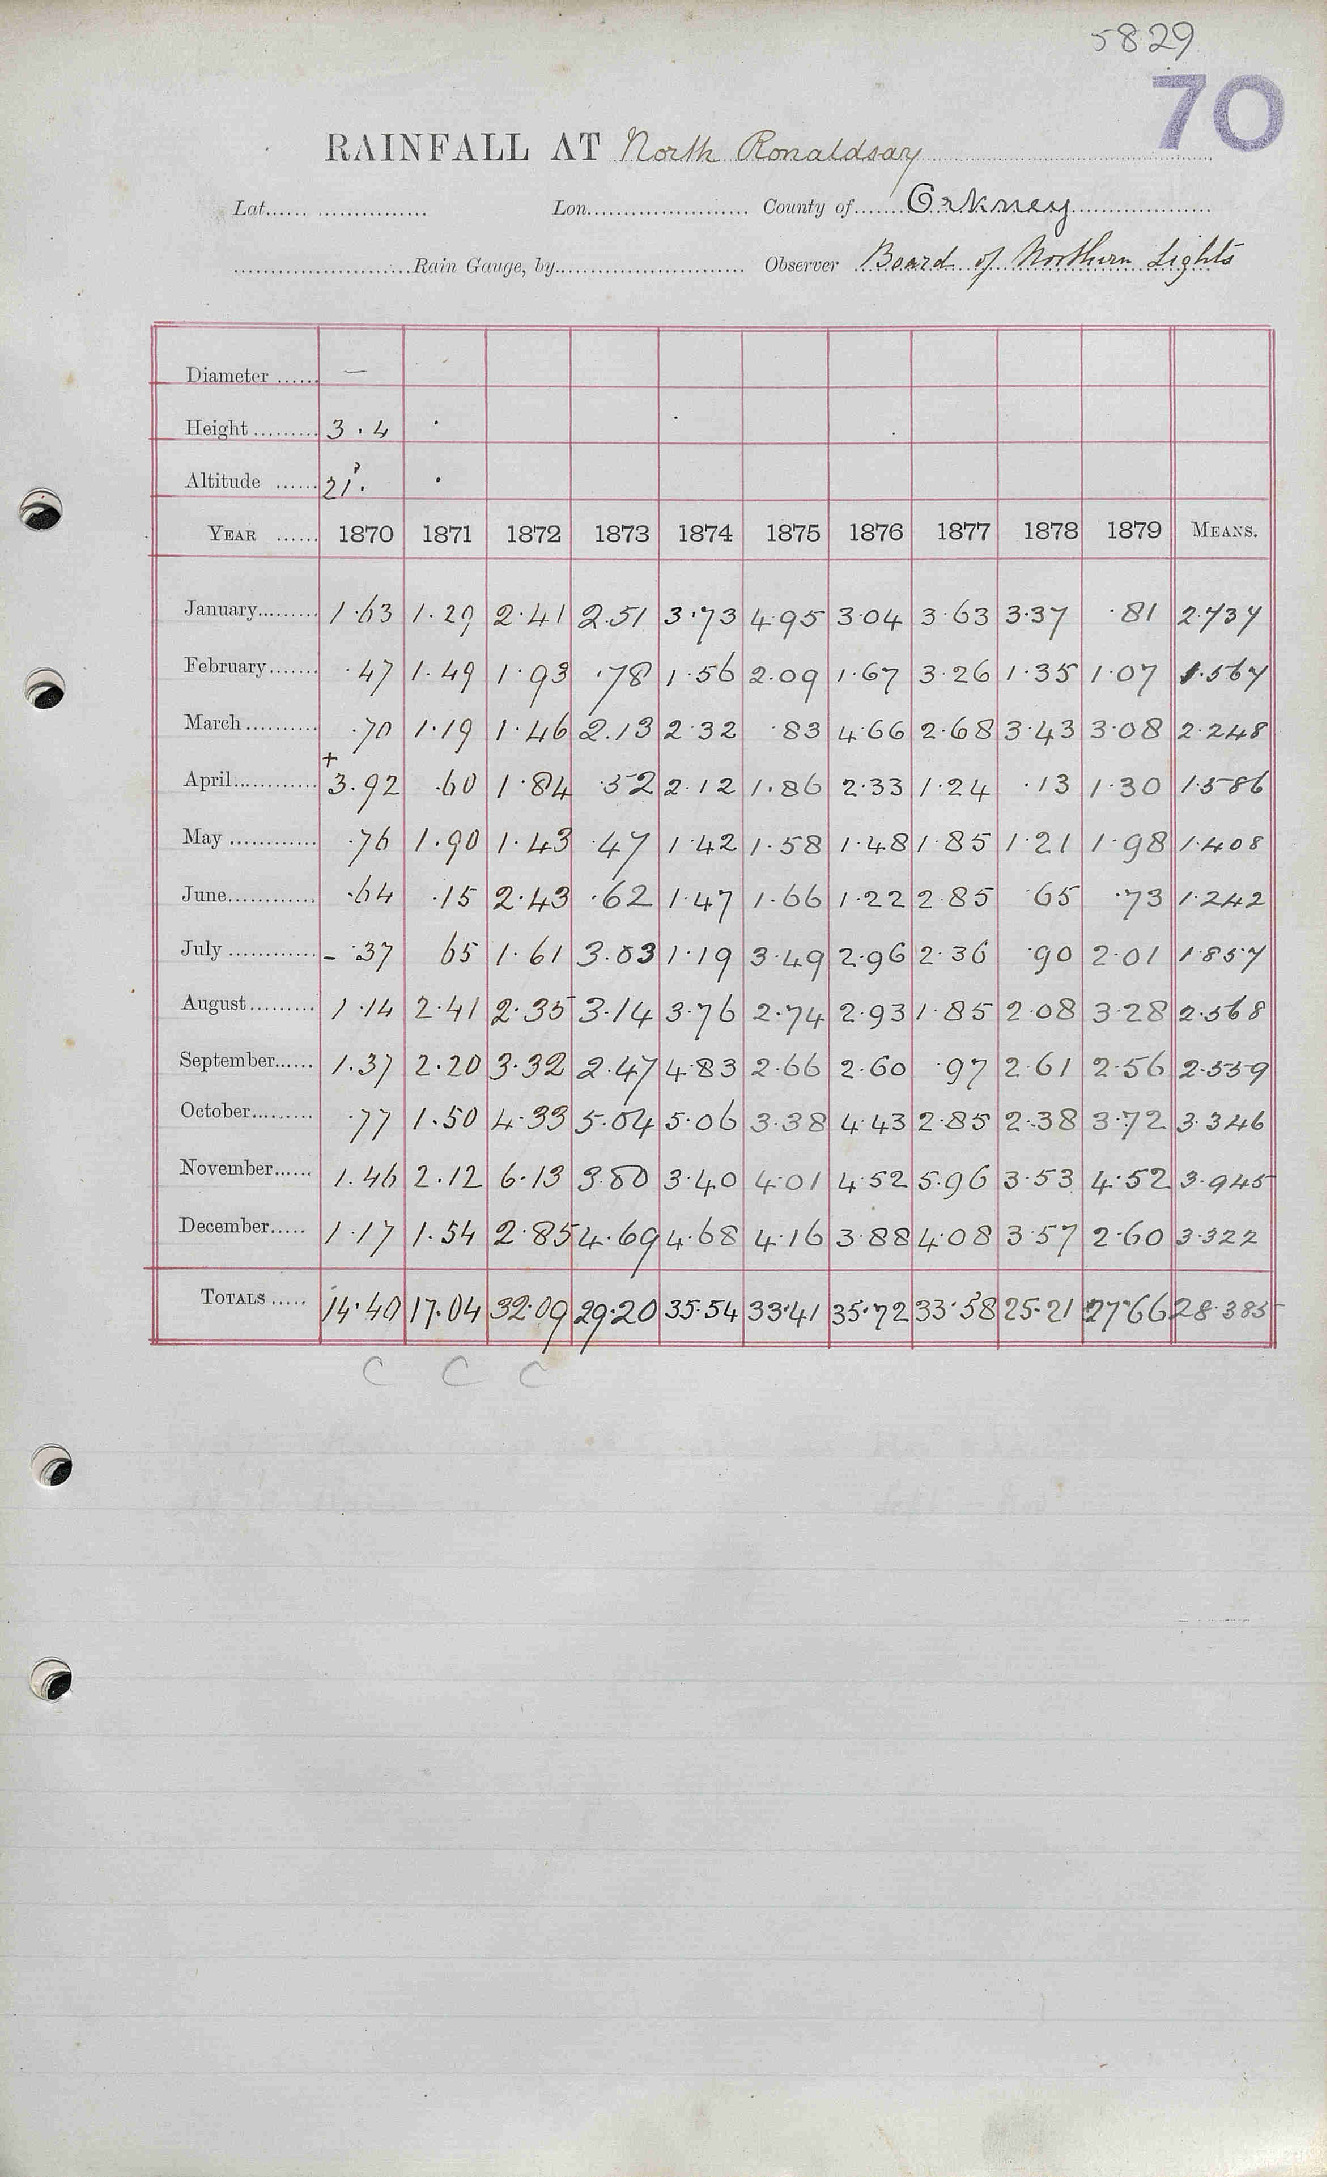 5829
70
RAINFALL AT North Ronaldsay
Lat. Lon. County of Orkney
Rain Gauge, by Observer Board of Northern Lights
Diameter —
Height 3.4
Altitude 21?
YEAR 1870 1871 1872 1873 1874 1875 1876 1877 1878 1879 MEANS.
January 1.63 1.29 2.41 2.51 3.73 4.95 3.04 3.63 3.37 .81 2.737
February .47 1.49 1.93 .78 1.56 2.09 1.67 3.26 1.35 1.07 1.567
March .70 1.19 1.46 2.13 2.32 .83 4.66 2.68 3.43 3.08 2.248
April +3.92 .60 1.84 .52 2.12 1.86 2.33 1.24 .13 1.30 1.586
May .76 1.90 1.43 .47 1.42 1.58 1.48 1.85 1.21 1.98 1.408
June .64 .15 2.43 .62 1.47 1.66 1.22 2.85 65 .73 1.242
July – .37 65 1.61 3.03 1.19 3.49 2.96 2.36 .90 2.01 1.857
August 1.14 2.41 2.35 3.14 3.76 2.74 2.93 1.85 2.08 3.28 2.568
September 1.37 2.20 3.32 2.47 4.83 2.66 2.60 .97 2.61 2.56 2.559
October .77 1.50 4.33 5.04 5.06 3.38 4.43 2.85 2.38 3.72 3.346
November 1.46 2.12 6.13 3.80 3.40 4.01 4.52 5.96 3.53 4.52 3.945
December 1.17 1.54 2.85 4.69 4.68 4.16 3.88 4.08 3.57 2.60 3.322
TOTALS 14.40 17.04 32.09 29.20 35.54 33.41 35.72 33.58 25.21 27.66 28.385
C C C